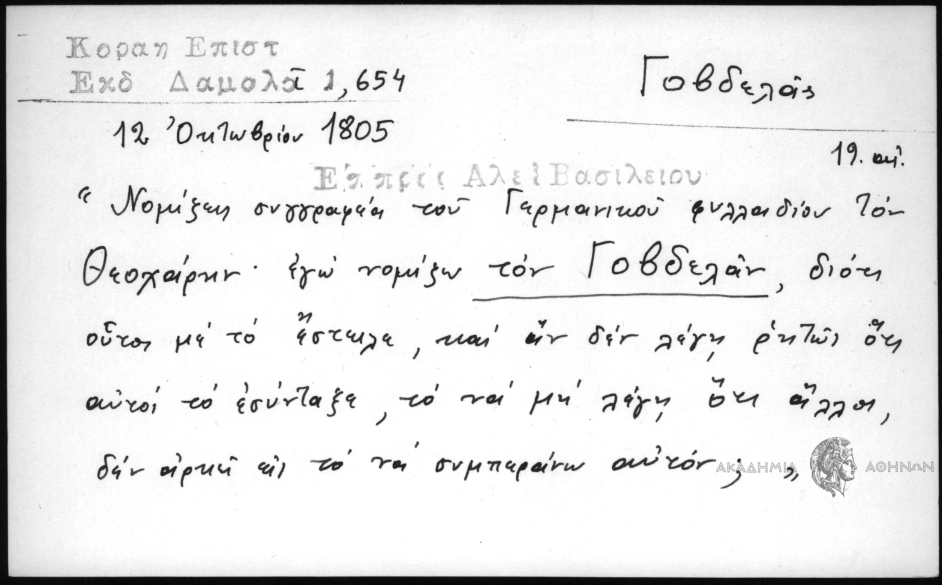 Κοραη Επιστ
Εκδ Δαμαλᾶ 1, 654
Γοβδελᾶς
12 Ὀκτωβρίου 1805
19. αἰ.
Επ πρὸς Αλεξ Βασιλειου
“ Νομίζεις συγγραφέα τοῦ Γερμανικοῦ φυλλαδίου τόν
Θεοχάρην· ἐγώ νομίζω τόν Γοβδελᾶν, διότι
οὗτος μέ τό ἔστειλε, καί ἄν δέν λέγῃ ῥητῶς ὅτι
αὐτός τό ἐσύνταξε, τό νά μή λέγῃ ὅτι ἄλλος,
δέν ἀρκεῖ εἰς τό νά συμπεράνω αὐτόν; „
ΑΚΑΔΗΜΙΑ ΑΘΗΝΩΝ